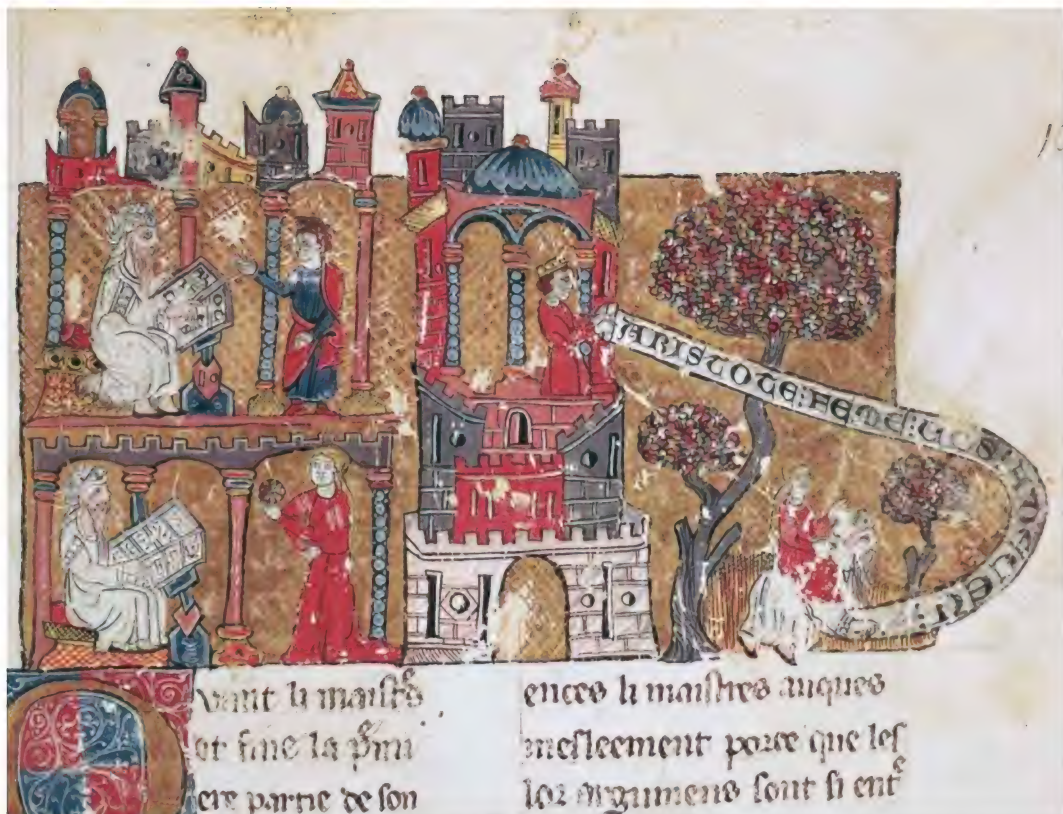 ARISTOTE : FEME :
vant li maistres
ot fine la
ere partie de son
ences li maistres auques
mesleement porce que les
lor argumens sont si ent